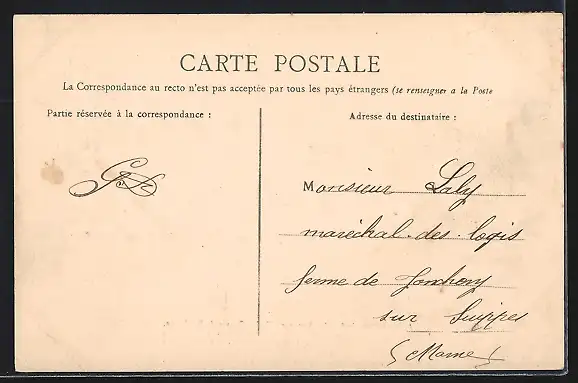 CARTE POSTALE
La Correspondance au recto n'est pas acceptée par tous les pays étrangers (se renseigner a la Poste
Partie réservée à la correspondance :
Adresse du destinataire :
Monsieur Laly
maréchal-des-logis
ferme de Jonchery
sur Suippes
(Marne)